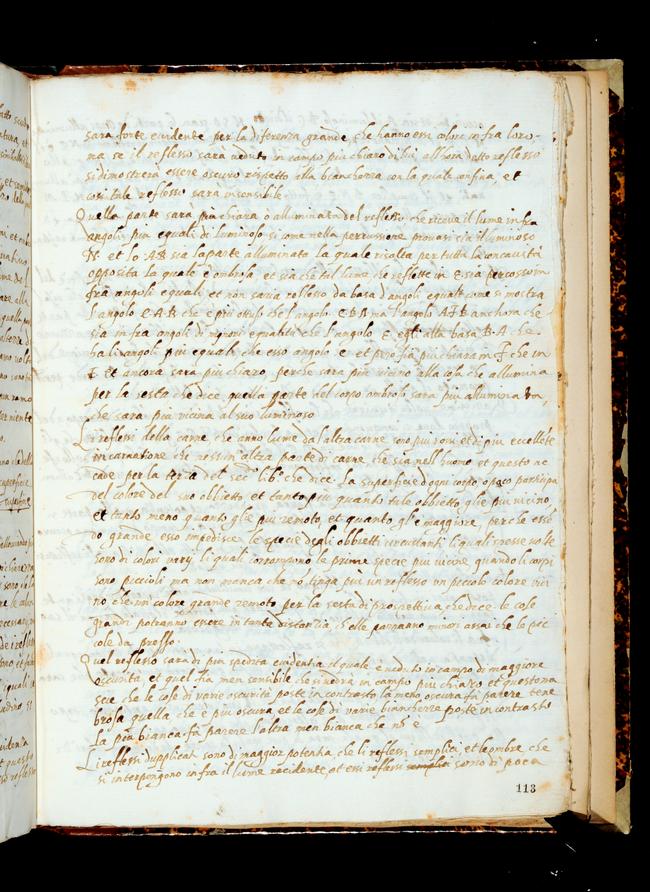 sara forte euidente per la diferenza grande, che hanno essi colori infra loro
ma se il reflesso sarà ueduto in campo più chiaro di lui, all'hora detto reflesso
si dimostrerà essere oscuro rispetto alla bianchezza con la quale confina, et
cosi tale reflesso sarà insensibile
Quella parte sara più chiara o alluminata del reflesso che riceue il lume infra
angoli più equali di luminoso si come nella percussione prouasi sia il luminoso
N et lo AB sia la parte alluminato la quale risalta per tutta la concauità
opposita la quale è ombrosa et sia che tal lume che reflette in E sia percosso in
fra angoli equali et non saria reflesso da basa d'angoli equali come si mostra
l'angolo EAB che è più ottuso che l'angolo EBA ma l'angolo AFB anchora che
sia infra angoli di minori equalità che l'angolo E egli alla basa BA che
ha li angoli più equali che esso angolo E et però fia più chiaro in F che in
E et ancora sara più chiaro, perche sara più uicino alla cosa che allumina
per la sesta che dice quella parte del corpo ombroso sara più alluminata,
che sara più uicina al suo luminoso
Li reflessi della carne che anno lume da l'altra carne sono più rossi et di più eccellete
incarnatione che nessun'altra parte di carne, che sia nell'huomo et questo ac
cade per la terza del sec.o lib.o che dice. La superficie d'ogni corpo opaco participa
del colore del suo obbietto et tanto più quanto tale obbietto glie più uicino,
et tanto meno quanto glie più remoto, et quanto gl'è maggiore, perche essē
do grande esso impedisce le specie degli obbietti circustanti li quali spesse uolte
sono di colori uarij li quali corrompono le prime specie più uicine quando li corpi
sono piccioli ma non manca che nō tinga più un reflesso un picciolo colore uici
no che un colore grande remoto per la sesta di prospettiua che dice le cose
grandi potranno essere in tanta distanzia, ch'elle parranno minori assai che le pic
cole da presso
Quel reflesso sara di più spedita euidentia il quale è ueduto in campo di maggiore
oscurità, et quel fia men sensibile che si uedrà in campo più chiaro et questo na
sce che le cose di uarie oscurità poste in contrasto la meno oscura fa parere tene
brosa quella che è più oscura et le cose di uarie bianchezze poste in contrasto
la più bianca fa parere l'altra men bianca che nō è
Li reflessi dupplicati sono di maggior potentia che li reflessi semplici et le ombre che
si interpongono infra il lume incidente et essi reflessi semplici sono di poca
113